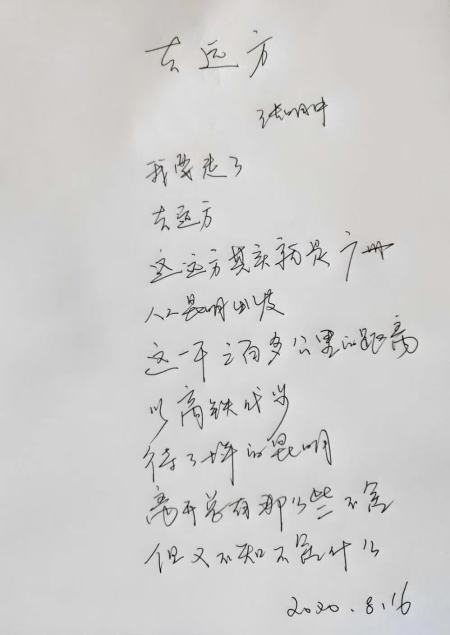 去远方
张明中
我要走了
去远方
这远方其实就是广州
从昆明出发
这一千三百多公里的距离
以高铁代步
待了十年的昆明
离开总有那么些不舍
但又不知不舍什么
2020.8.16